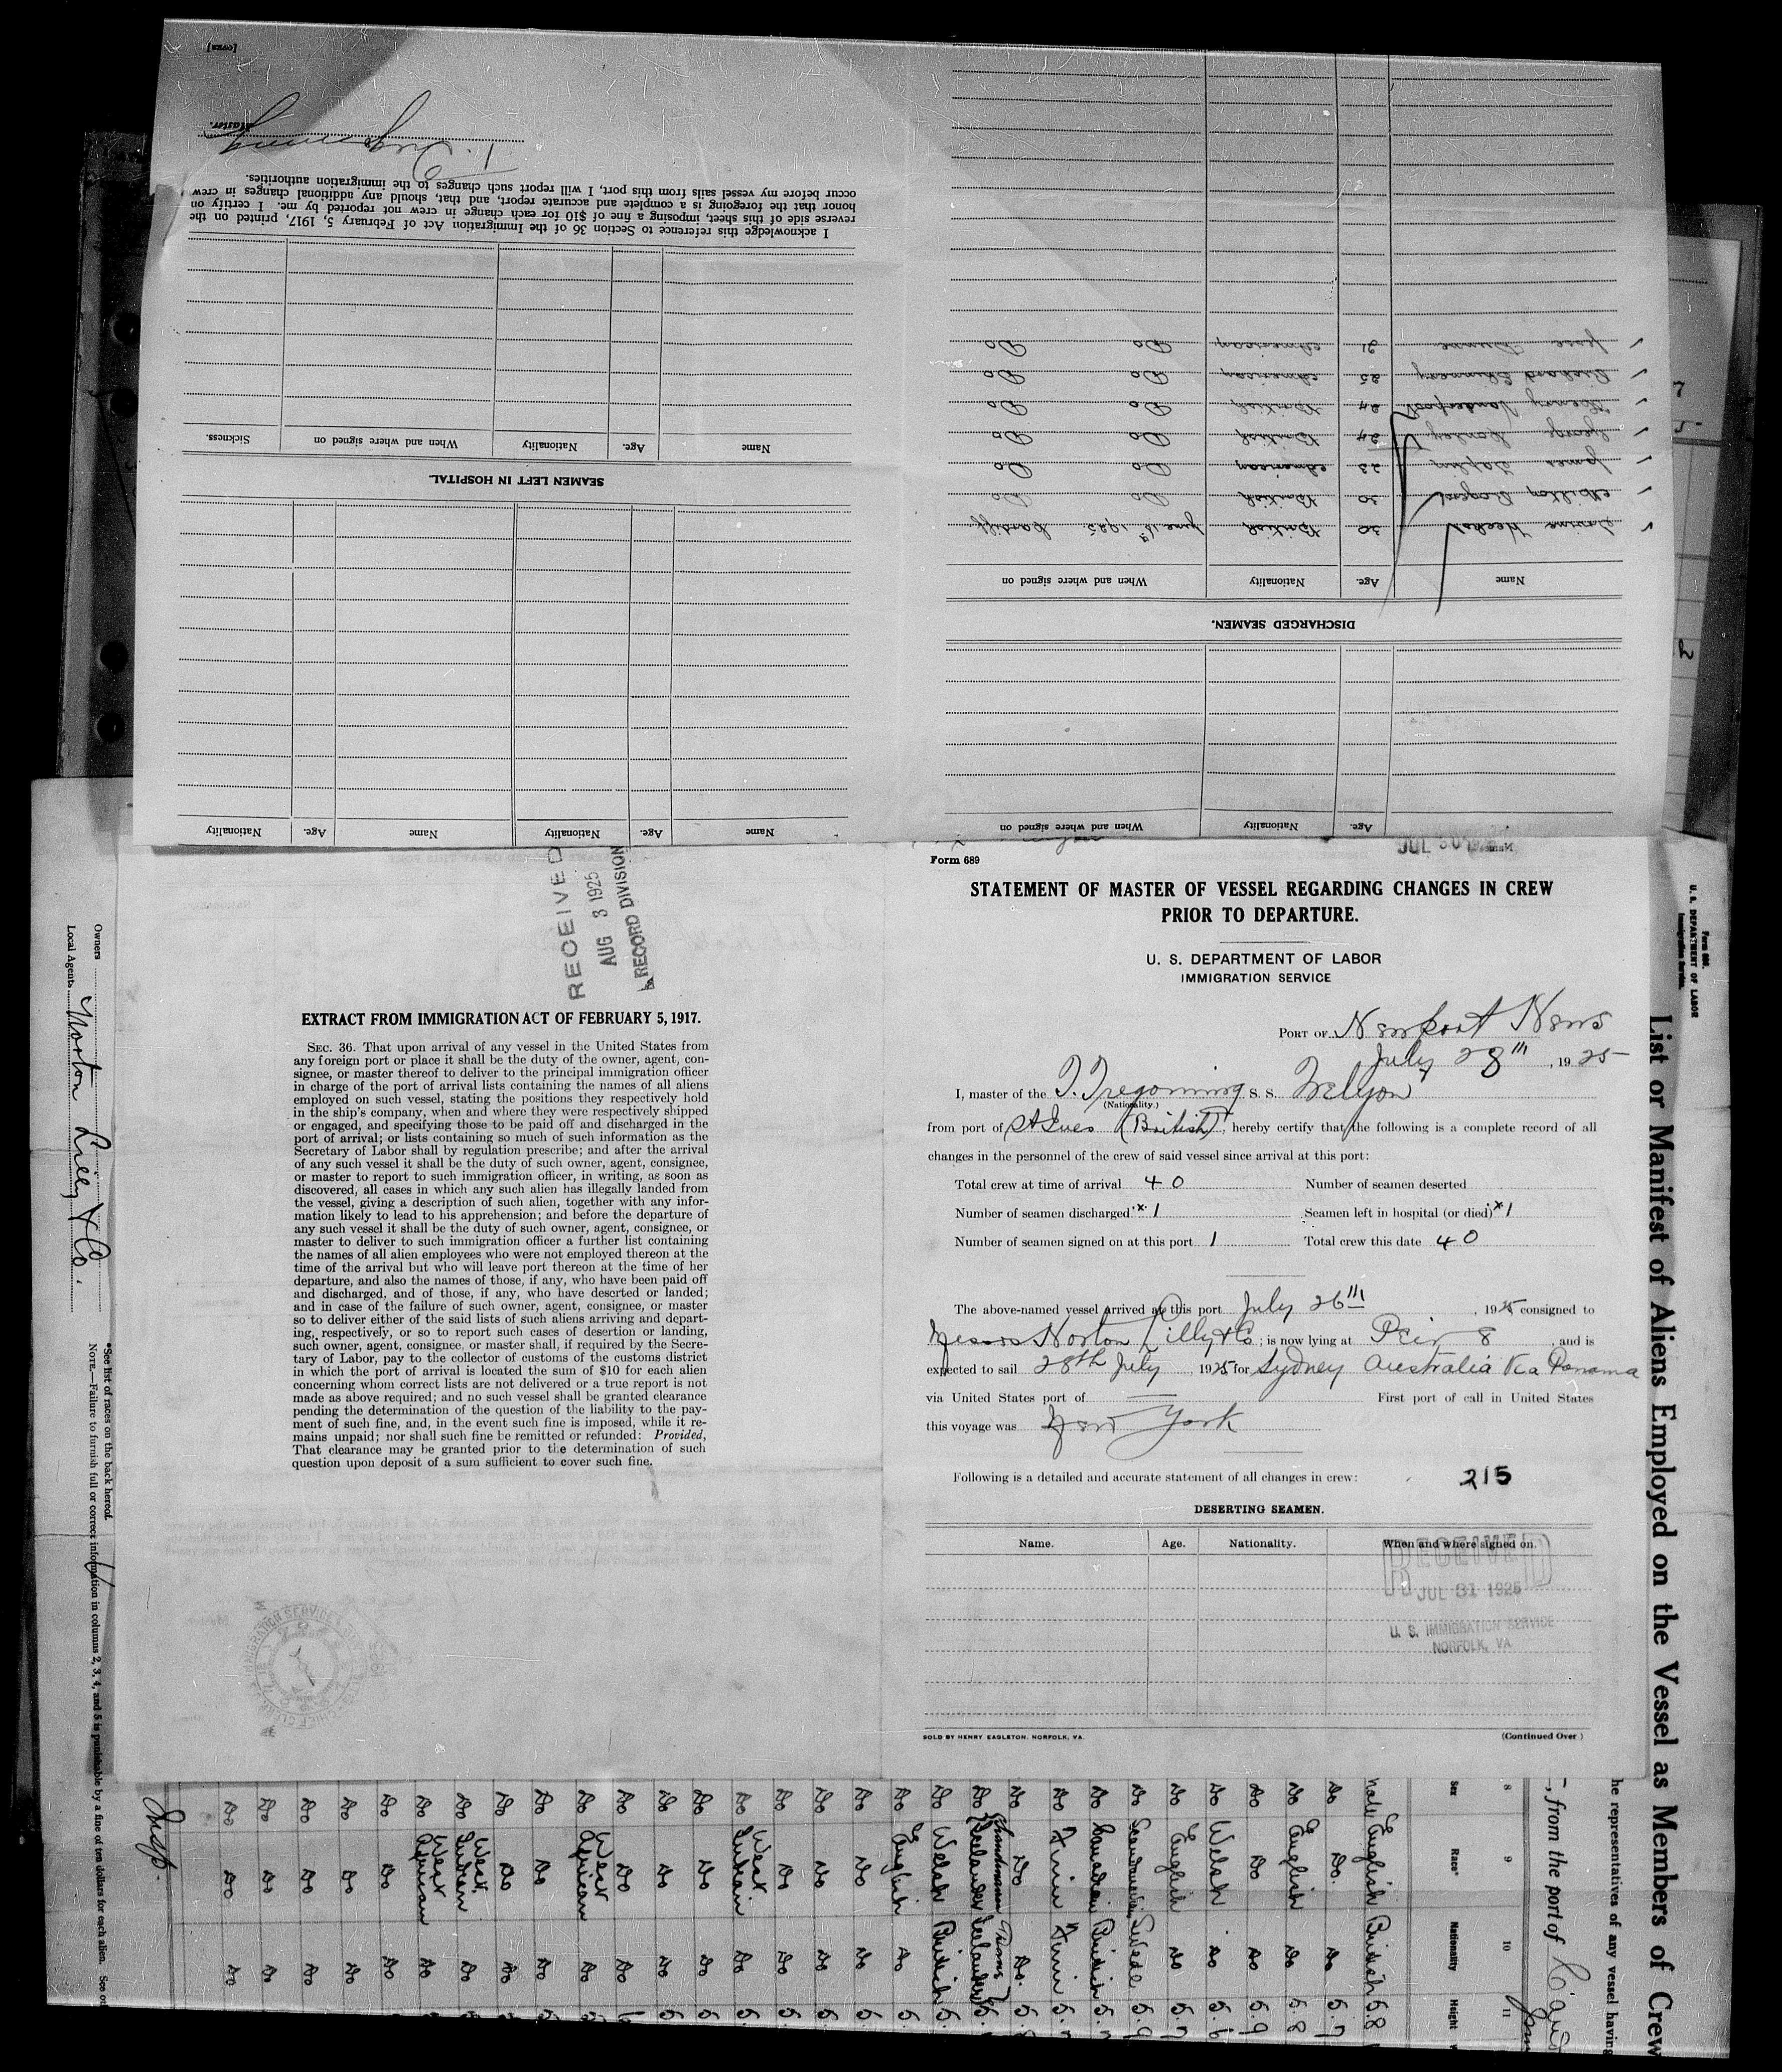 [OVER]
Master.
I acknowledge this reference to Section 36 of the Immigration Act of February 5, 1917, printed on the
reverse side of this sheet, imposing a fine of $10 for each change in crew not reported by me. I certify on
honor that the foregoing is a complete and accurate report, and that, should any additional changes in crew
occur before my vessel sails from this port, I will report such changes to the immigration authorities.
Name Age. Nationality When and where signed on Sickness.
SEAMEN LEFT IN HOSPITAL.
Name Age. Nationality Name Age. Nationality
Name Age. Nationality When and where signed on
DISCHARGED SEAMEN.
Name Age. Nationality When and where signed on
30 British June 1925 Cardiff
Milton 30 British Do Do
James 23 American Do Do
George 24 British Do Do
Henry 24 British Do Do
25 American Do Do
Jesse 21 American Do Do
JUL 30
RECEIVED
AUG 3 1925
RECORD DIVISION
EXTRACT FROM IMMIGRATION ACT OF FEBRUARY 5, 1917.
SEC. 36. That upon arrival of any vessel in the United States from
any foreign port or place it shall be the duty of the owner, agent, con-
signee, or master thereof to deliver to the principal immigration officer
in charge of the port of arrival lists containing the names of all aliens
employed on such vessel, stating the positions they respectively hold
in the ship's company, when and where they were respectively shipped
or engaged, and specifying those to be paid off and discharged in the
port of arrival; or lists containing so much of such information as the
Secretary of Labor shall by regulation prescribe; and after the arrival
of any such vessel it shall be the duty of such owner, agent, consignee,
or master to report to such immigration officer, in writing, as soon as
discovered, all cases in which any such alien has illegally landed from
the vessel, giving a description of such alien, together with any infor-
mation likely to lead to his apprehension; and before the departure of
any such vessel it shall be the duty of such owner, agent, consignee, or
master to deliver to such immigration officer a further list containing
the names of all alien employees who were not employed thereon at the
time of the arrival but who will leave port thereon at the time of her
departure, and also the names of those, if any, who have been paid off
and discharged, and of those, if any, who have deserted or landed;
and in case of the failure of such owner, agent, consignee, or master
so to deliver either of the said lists of such aliens arriving and depart-
ing, respectively, or so to report such cases of desertion or landing,
such owner, agent, consignee, or master shall, if required by the Secre-
tary of Labor, pay to the collector of customs of the customs district
in which the port of arrival is located the sum of $10 for each alien
concerning whom correct lists are not delivered or a true report is not
made as above required; and no such vessel shall be granted clearance
pending the determination of the question of the liability to the pay-
ment of such fine, and, in the event such fine is imposed, while it re-
mains unpaid; nor shall such fine be remitted or refunded: Provided,
That clearance may be granted prior to the determination of such
question upon deposit of a sum sufficient to cover such fine.
Form 689
STATEMENT OF MASTER OF VESSEL REGARDING CHANGES IN CREW
PRIOR TO DEPARTURE.
U. S. DEPARTMENT OF LABOR
IMMIGRATION SERVICE
PORT OF Newport News
July 28th, 1925
I, master of the T. Tregoning S. S. Trelyon
(Nationality.)
from port of St Ives (British), hereby certify that the following is a complete record of all
changes in the personnel of the crew of said vessel since arrival at this port:
Total crew at time of arrival 40 Number of seamen deserted
Number of seamen discharged x 1 Seamen left in hospital (or died) x 1
Number of seamen signed on at this port 1 Total crew this date 40
The above-named vessel arrived at this port July 26th, 1925 consigned to
Messrs Norton Lilly & Co; is now lying at Peir 8, and is
expected to sail 28th July, 1925 for Sydney Australia Via Panama
via United States port of First port of call in United States
this voyage was New York
Following is a detailed and accurate statement of all changes in crew:
215
DESERTING SEAMEN.
Name. Age. Nationality. When and where signed on.
RECEIVED
JUL 31 1925
U. S. IMMIGRATION SERVICE
NORFOLK, VA
SOLD BY HENRY EAGLETON, NORFOLK, VA.
(Continued Over)
Owners
Local Agents Norton Lilly & Co.
*See list of races on the back hereof.
NOTE.—Failure to furnish full or correct information in columns 2, 3, 4, and 5 is punishable by a fine of ten dollars for each alien.
U. S. DEPARTMENT OF LABOR
Immigration Service.
List or Manifest of Aliens Employed on the Vessel as Members of Crew
he representatives of any vessel having
, from the port of
8 9 10 11
Sex Race* Nationality Height
male English British 5.8
Do Do. Do 5.7
Do English Do 5.8
Do Do Do 5.9
Do Welsh Do 5.6
Do English Do 5.7
Do Scandinavian Swede 5.9
Do Canadian British 5.
Do Finn Finn 5.
Do Do Do. 5.
Do Icelander Icelander 5.
Do Welsh British 5.
Do English Do 5.
Do Do Do 5.
Do Do Do 5.
Do Do Do 5.
Do West Indian Do 5.
Do Do Do 5.
Do Do Do 5.
Do Do Do
Do West African Do
Do Do Do
Do Do Do
Do West Indian Do
Do West African Do
Do Do Do
Do Do Do
Do Do Do
Do Do Do
Do Do Do